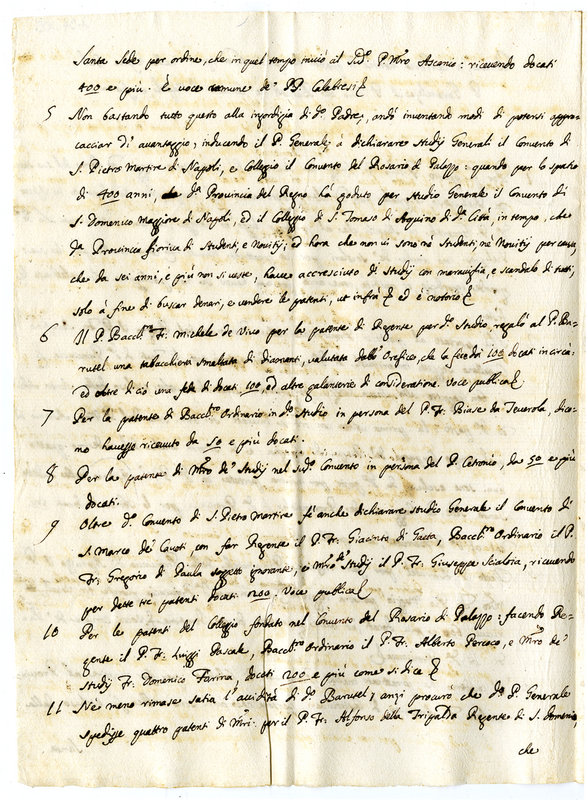 Santa Sede per ordine, che in quel tempo inviò al Sud.º P. Mrõ Ascenio: ricevendo docati
400 e piu. È voce comune de' PP. Calabresi
5 Non bastando tutto questo alla ingordigia di d.º Padre, andò inventando modi di potersi appro=
cacciar d'avantaggio; inducendo il P. Generale, à dichiarare Studij Generali il Convento di
S. Pietro Martire di Napoli, e Collegio il Convento del Rosario di Palazzo: quando per lo spatio
di 400 anni, d.ª Provincia del Regno hà goduto per Studio Generale il Convento di
S. Domenico Maggiore di Napoli, ed il Colleggio di S. Tomaso di Aquino di d.ª Città, in tempo, che
d.ª Provincia fioriva di Studenti, e Novitij; ed hora che non vi sono nè Studenti, nè Novitij per causa,
che da sei anni, e più non si veste, have accresciuto di Studij con maraviglia, e scandalo di tutti,
solo à fine di buscar denari, e vendere le patenti, ut infra ed è notorio
6 Il P. Bacc.ro Fr. Michele de Vivo per la patente di Regente per d.º Studio, regalò al P. Ba=
rutel una tabacchiera smaltata di diamanti, valutata dallo Orefice, che la fece di 100 docati in circa:
ed oltre di ciò una di docati 100, ed altre galanterie di consideratione. Voce publica
7 Per la patente di Bacc.ro Ordinario in d.º Studio in persona del P. Fr. Biase da Teverola, dico=
no havesse ricevuto da 50 e più docati.
8 Per la patente di Mrõ de' Studij nel Sud.º Convento in persona del P. Cetronio, da 50 e più
docati.
9 Oltre d.º Convento di S. Pietro Martire fè anche dichiarare studio Generale il Convento di
S. Marco de' Cavoti, con far Regente il P. Fr. Giacinto di Gaeta, Bacc.ro Ordinario il P.
Fr. Gregorio di Paula soggetto ignorante, e Mrõ de Studij il P. Fr. Giuseppe Scialoia, ricevendo
per dette tre patenti docati 200. Voce publica
10 Per le patenti del Collegio fondato nel Convento del Rosario di Palazzo: facendo Re=
gente il P. Fr. Luiggi Pascale, Bacc.ro Ordinario il P. Fr. Alberto Percoco, e Mrõ de'
Studij Fr. Domenico Farina, docati 200 e più come si dice
11 Nè meno rimase satia l'avidità di d.º Barutel, anzi procurò che d.º P. Generale
spedisse quattro patenti di Mri. per il P. Fr. Alfonso della Tripalda Regente di S. Domenico,
che